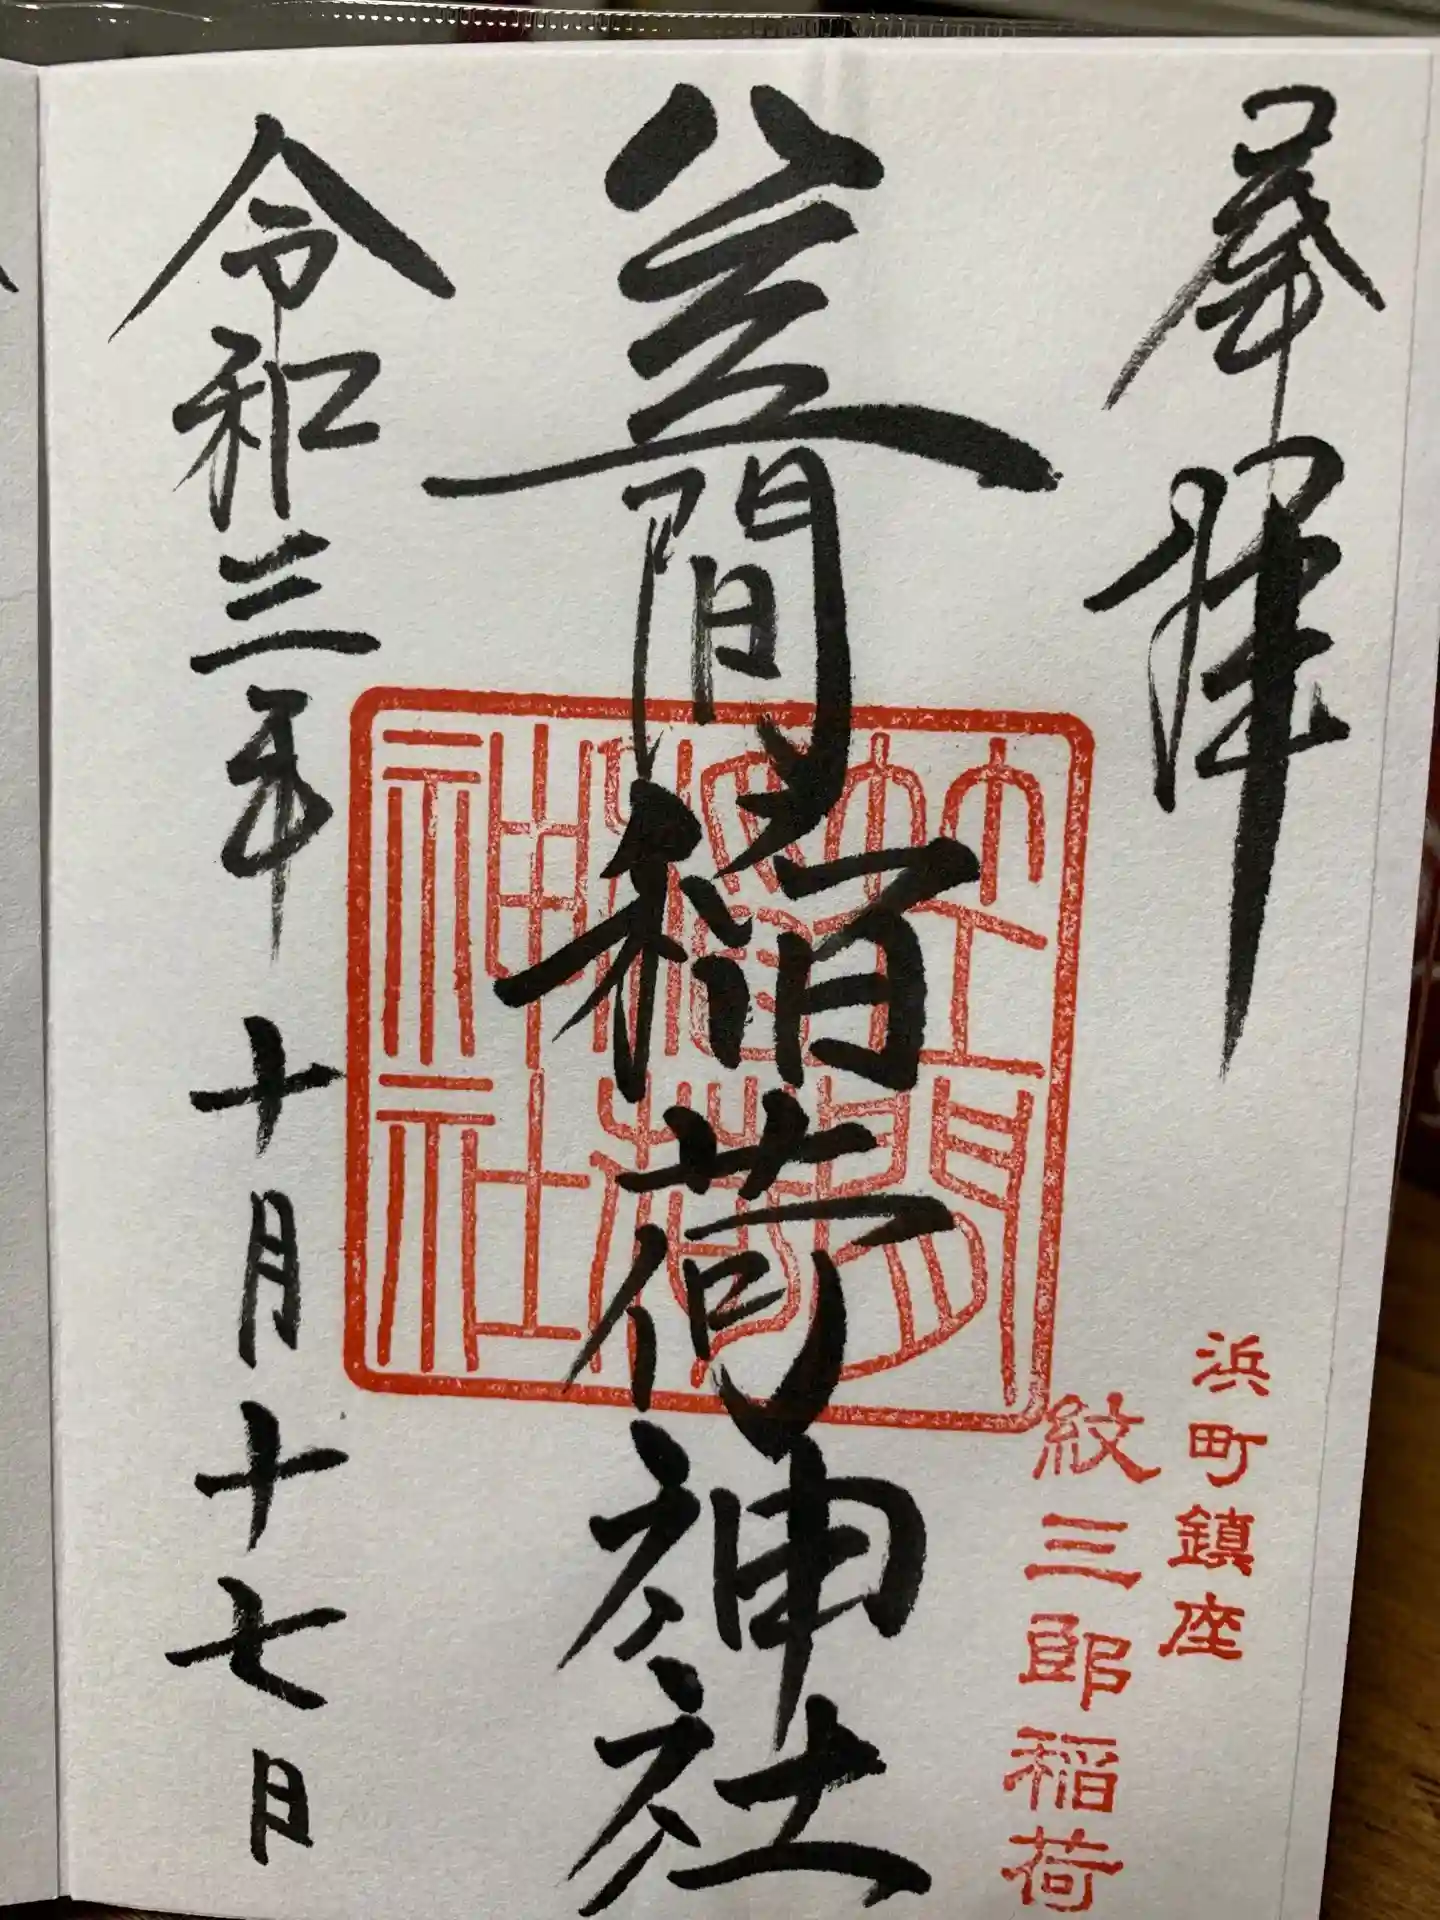 奉拝
浜町鎮座
紋三郎稲荷
笠間稲荷神社
笠間
稲荷
神社
令和三年十月十七日